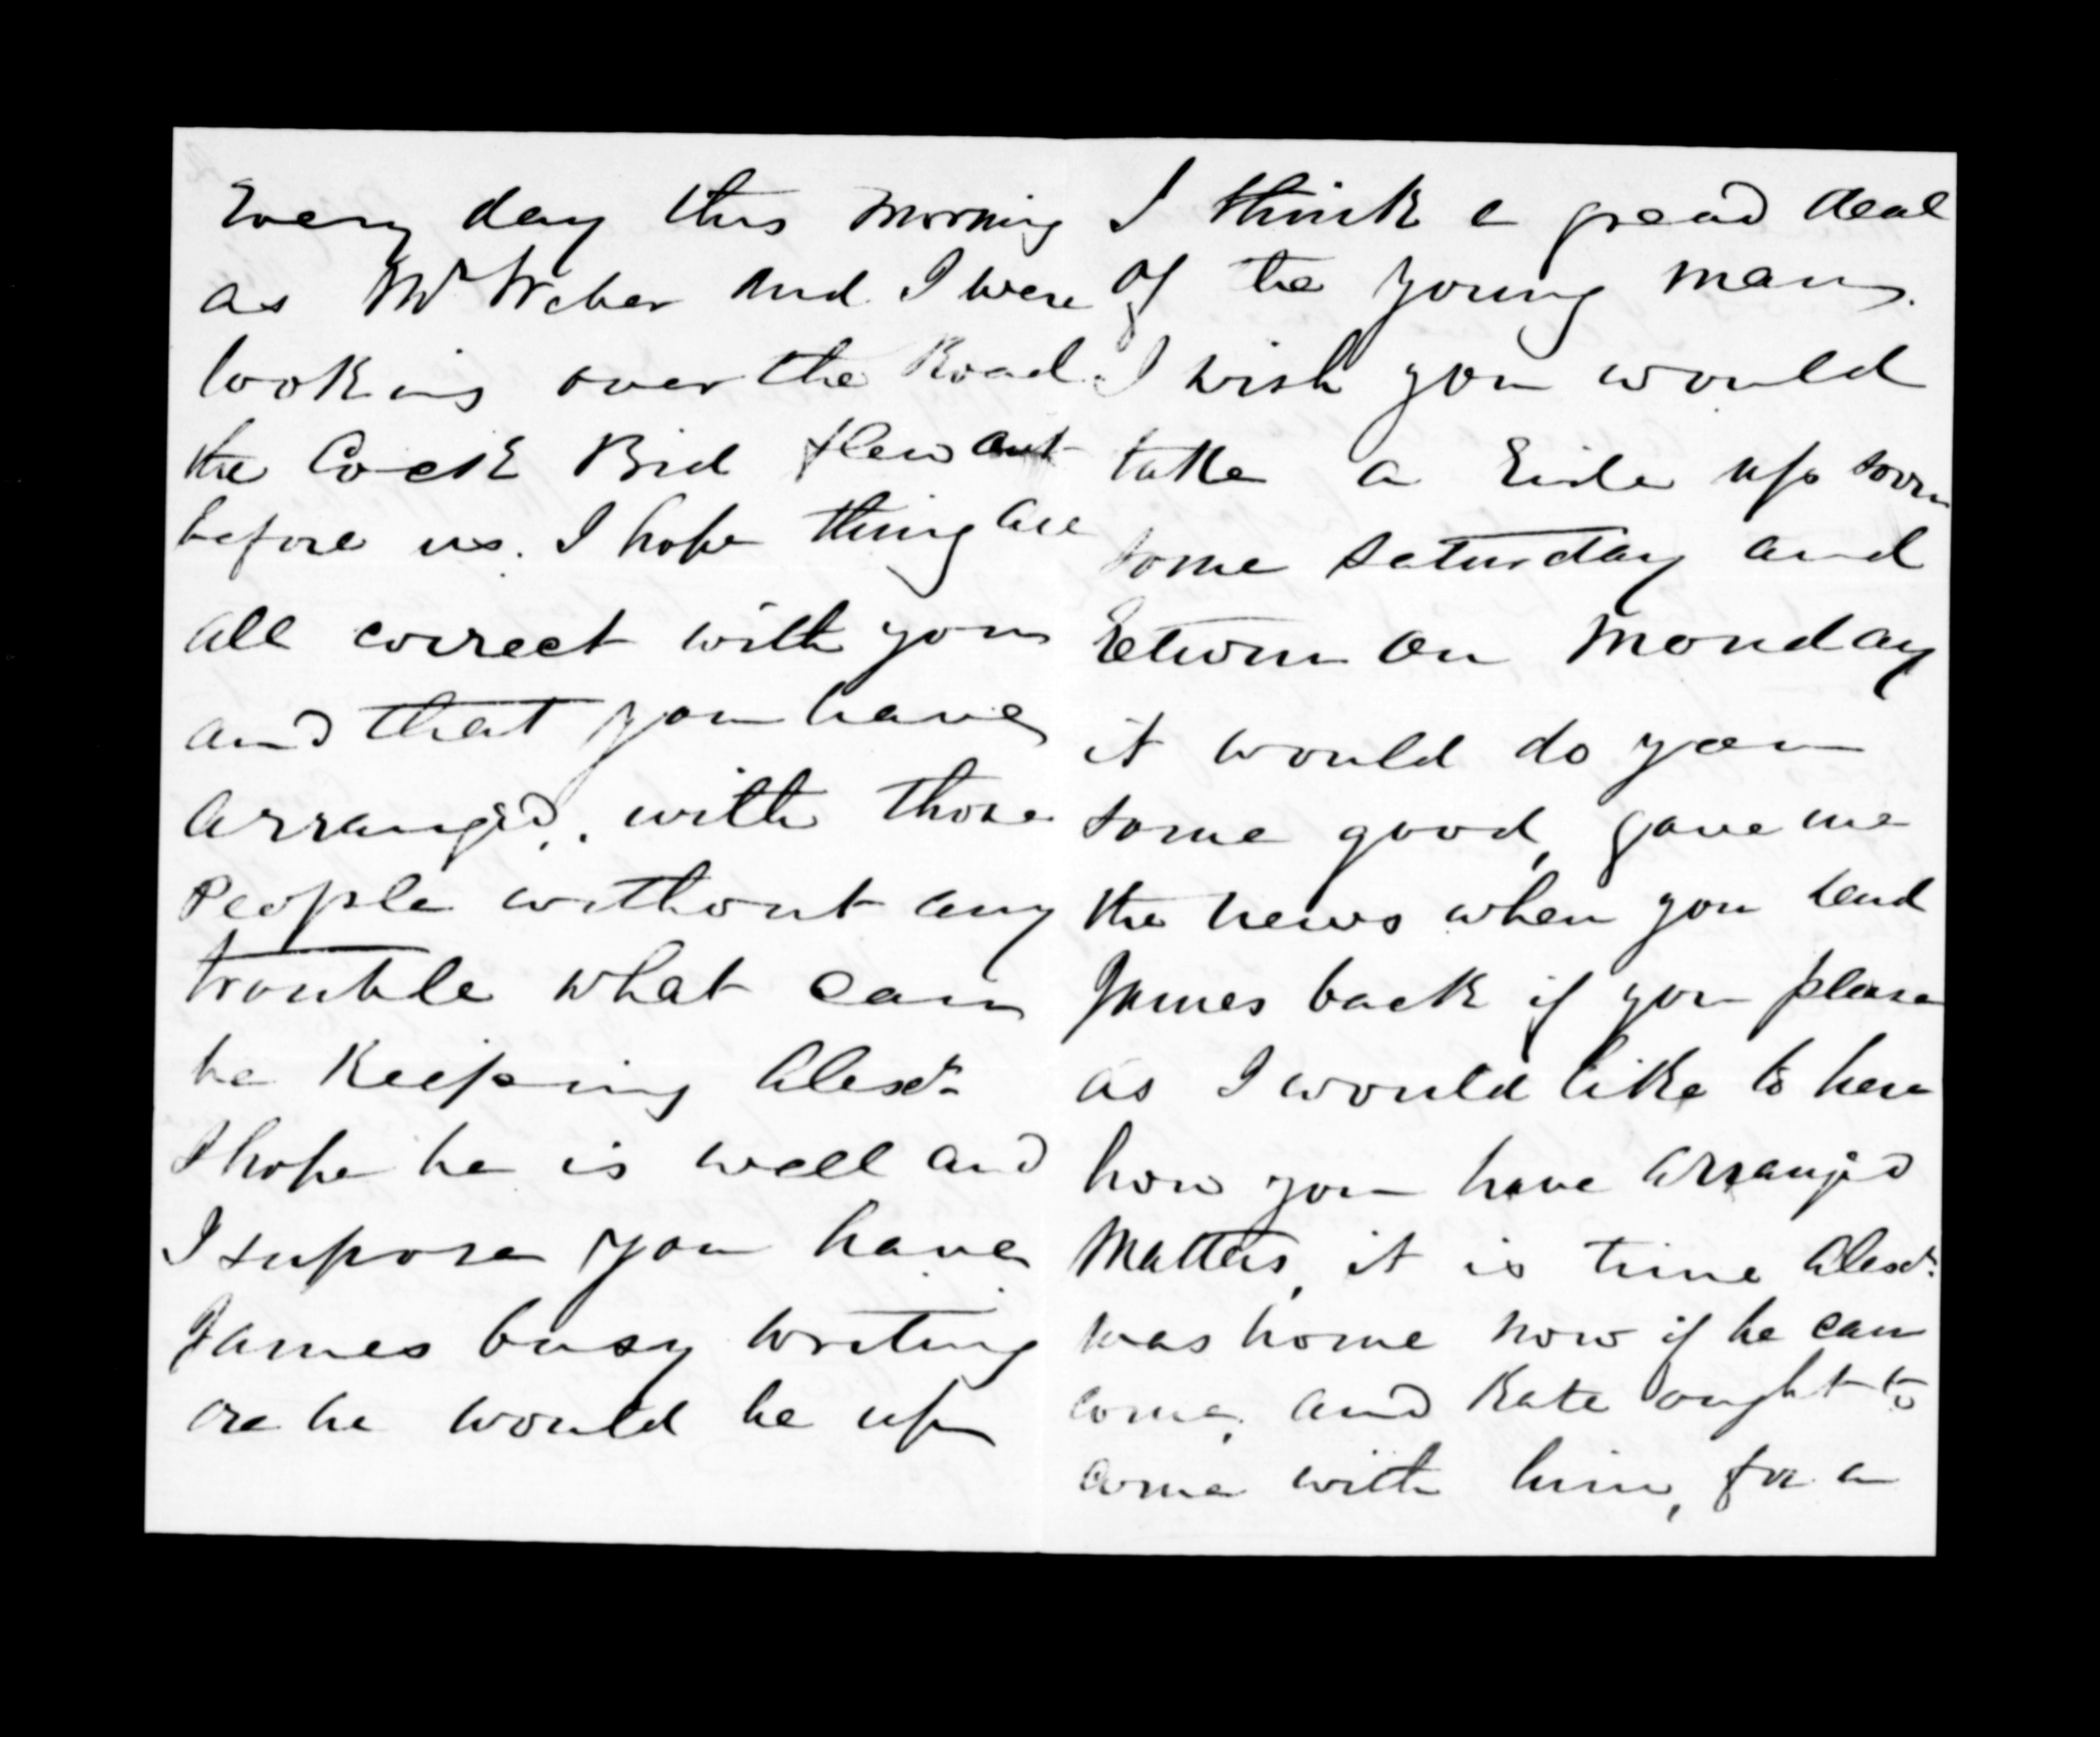 Every day this morning
as Mr Weber and I were
looking over the Road
the Cock Bird flew out
before us. I hope thing are
all correct with you
and that you have
arranged, with those
People without any
trouble what can
be keeping Alexr
I hope he is well and
I supose you have
James busy writing
ore he would be up
I think a gread deal
of the young man.
I wish you would
take a Ride up soon
some saturday and
Return on Monday
it would do you
some good, gave me
the news when you send
James back if you please
as I would like to here
how you have arranged
Matters, it is time Alexr
was home now if he can
come, and Kate ought to
come with him, for a